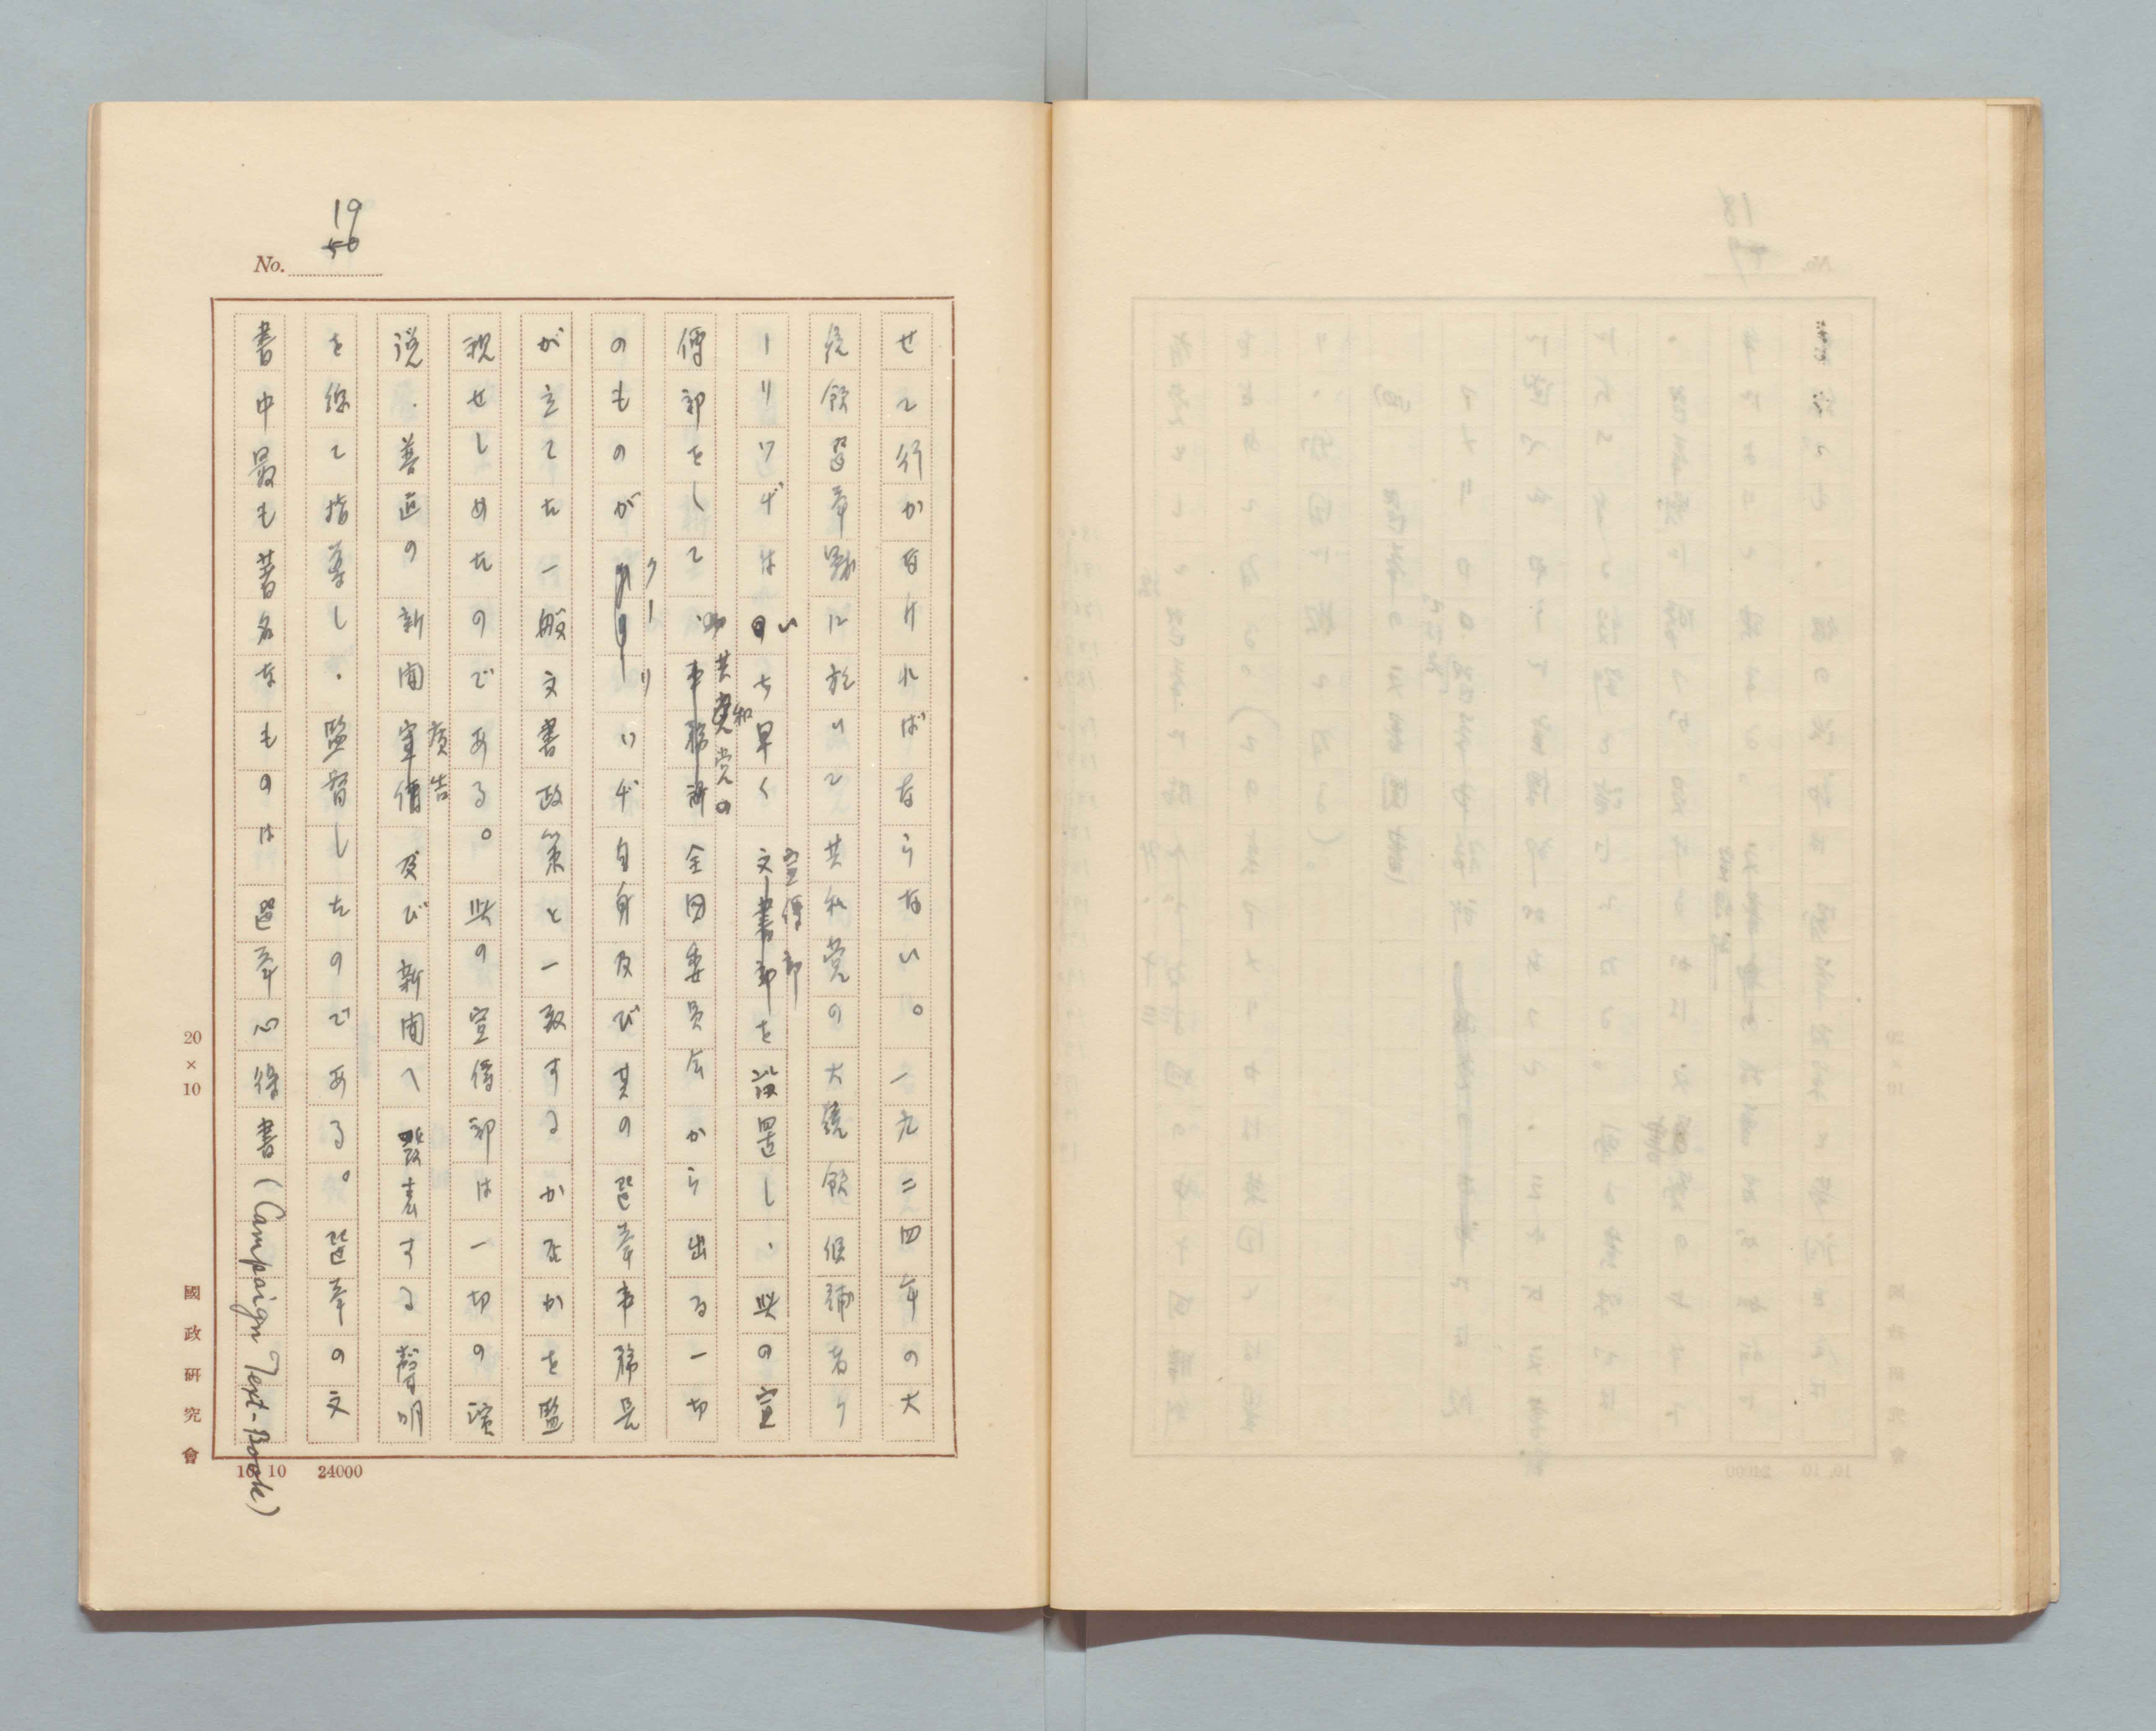 19
50
No.
せて行かなければならない。一九二四年の大
統領選挙戦に於いて共和党の大統領候補者ク
ーリッヂはいち早く宣傳部を設置し、此の宣
文書部
傳部をして共和党の全国委員会から出る一切
事務所
のものがクーリッヂ自身及び其の選挙事務長
が立てた一般文書政策と一致するか否かを監
視せしめたのである。此の宣傳部は一切の演
説、善通の新聞廣告及び新聞へ發表する聲明
宣傳
を總て指導し、監督したのである。選挙の文
書中最も著名なものは選挙心得書(Campaign Text-Book)
20×10
國政研究會
10.10 24000